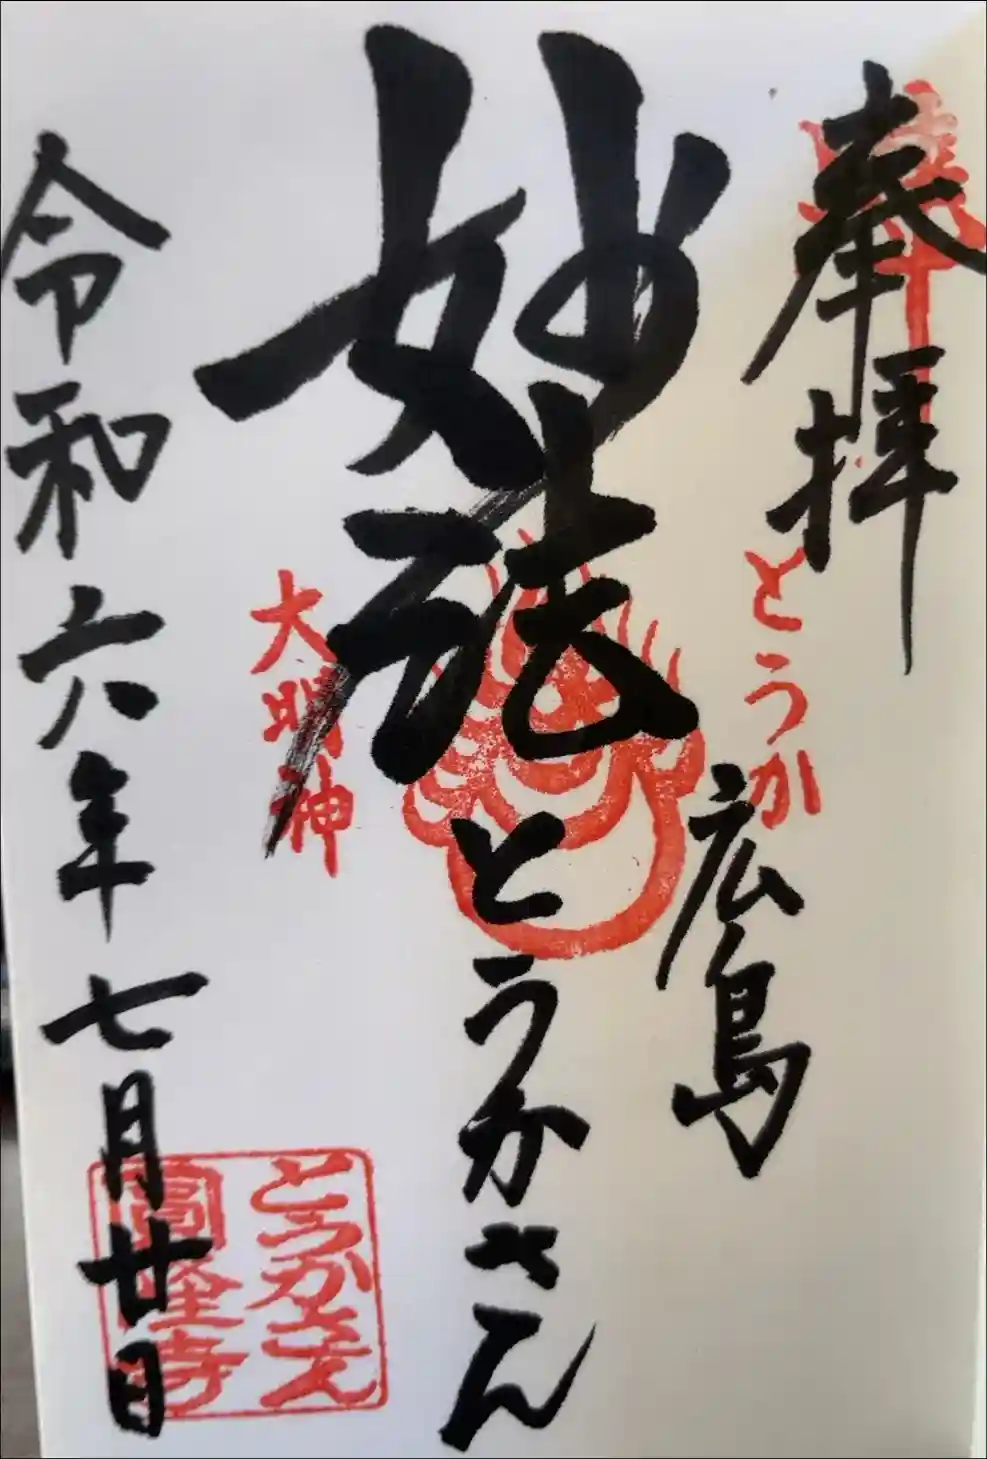 奉拝
広島
とうか
妙法
とうかさん
大明神
令和六年七月廿日
とうかさん
圓隆寺